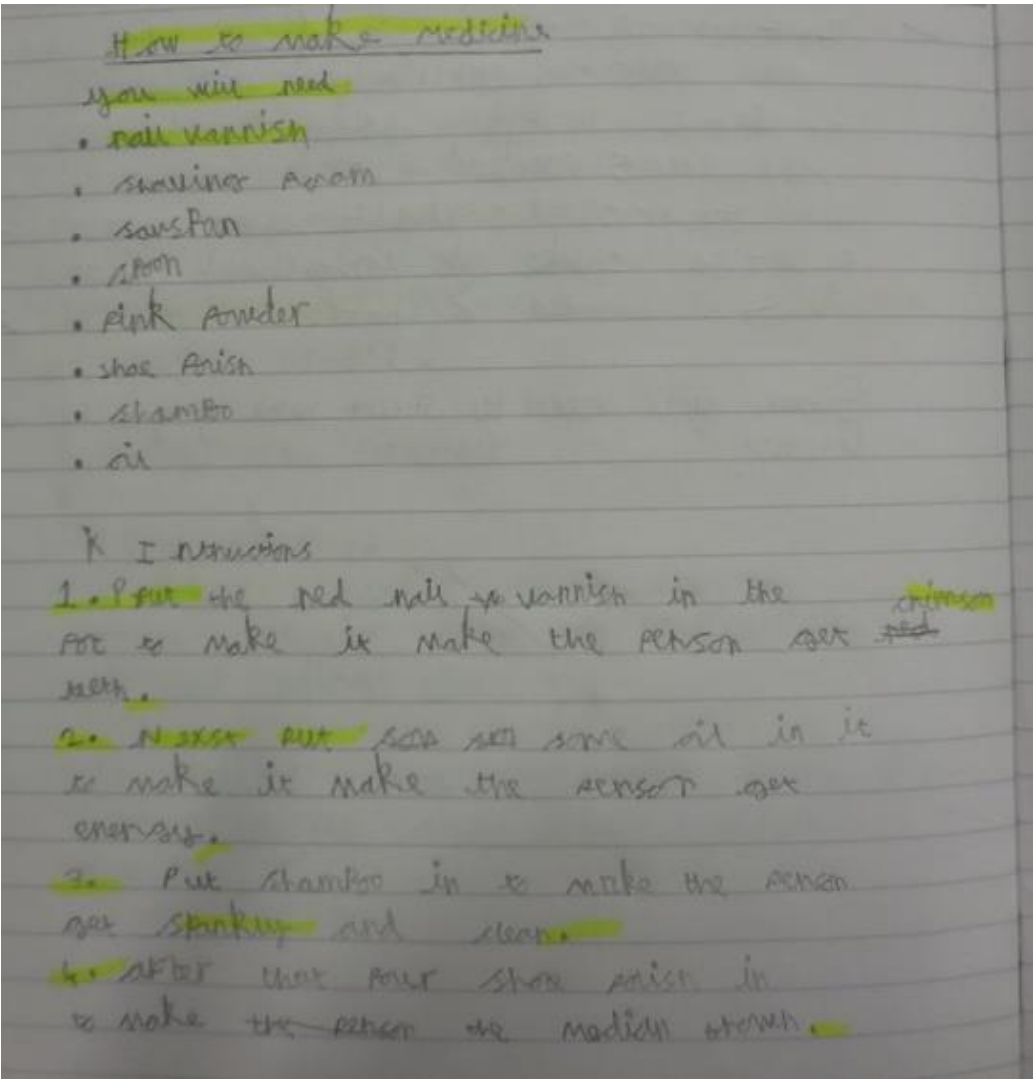 How to make medicine
you will need
• nail vannish
• shaving
• sauspan
• spoon
• pink powder
• shoe polish
• shampo
• oil
Intructions
1. Put the red nail vannish in the crimson
pot to make it make the person get red
teeth.
2. Nexst put some oil in it
to make it make the person get
energy.
3. Put shampoo in to make the person
get and clean.
4. after that pour shoe polish in
to make the person the brown.